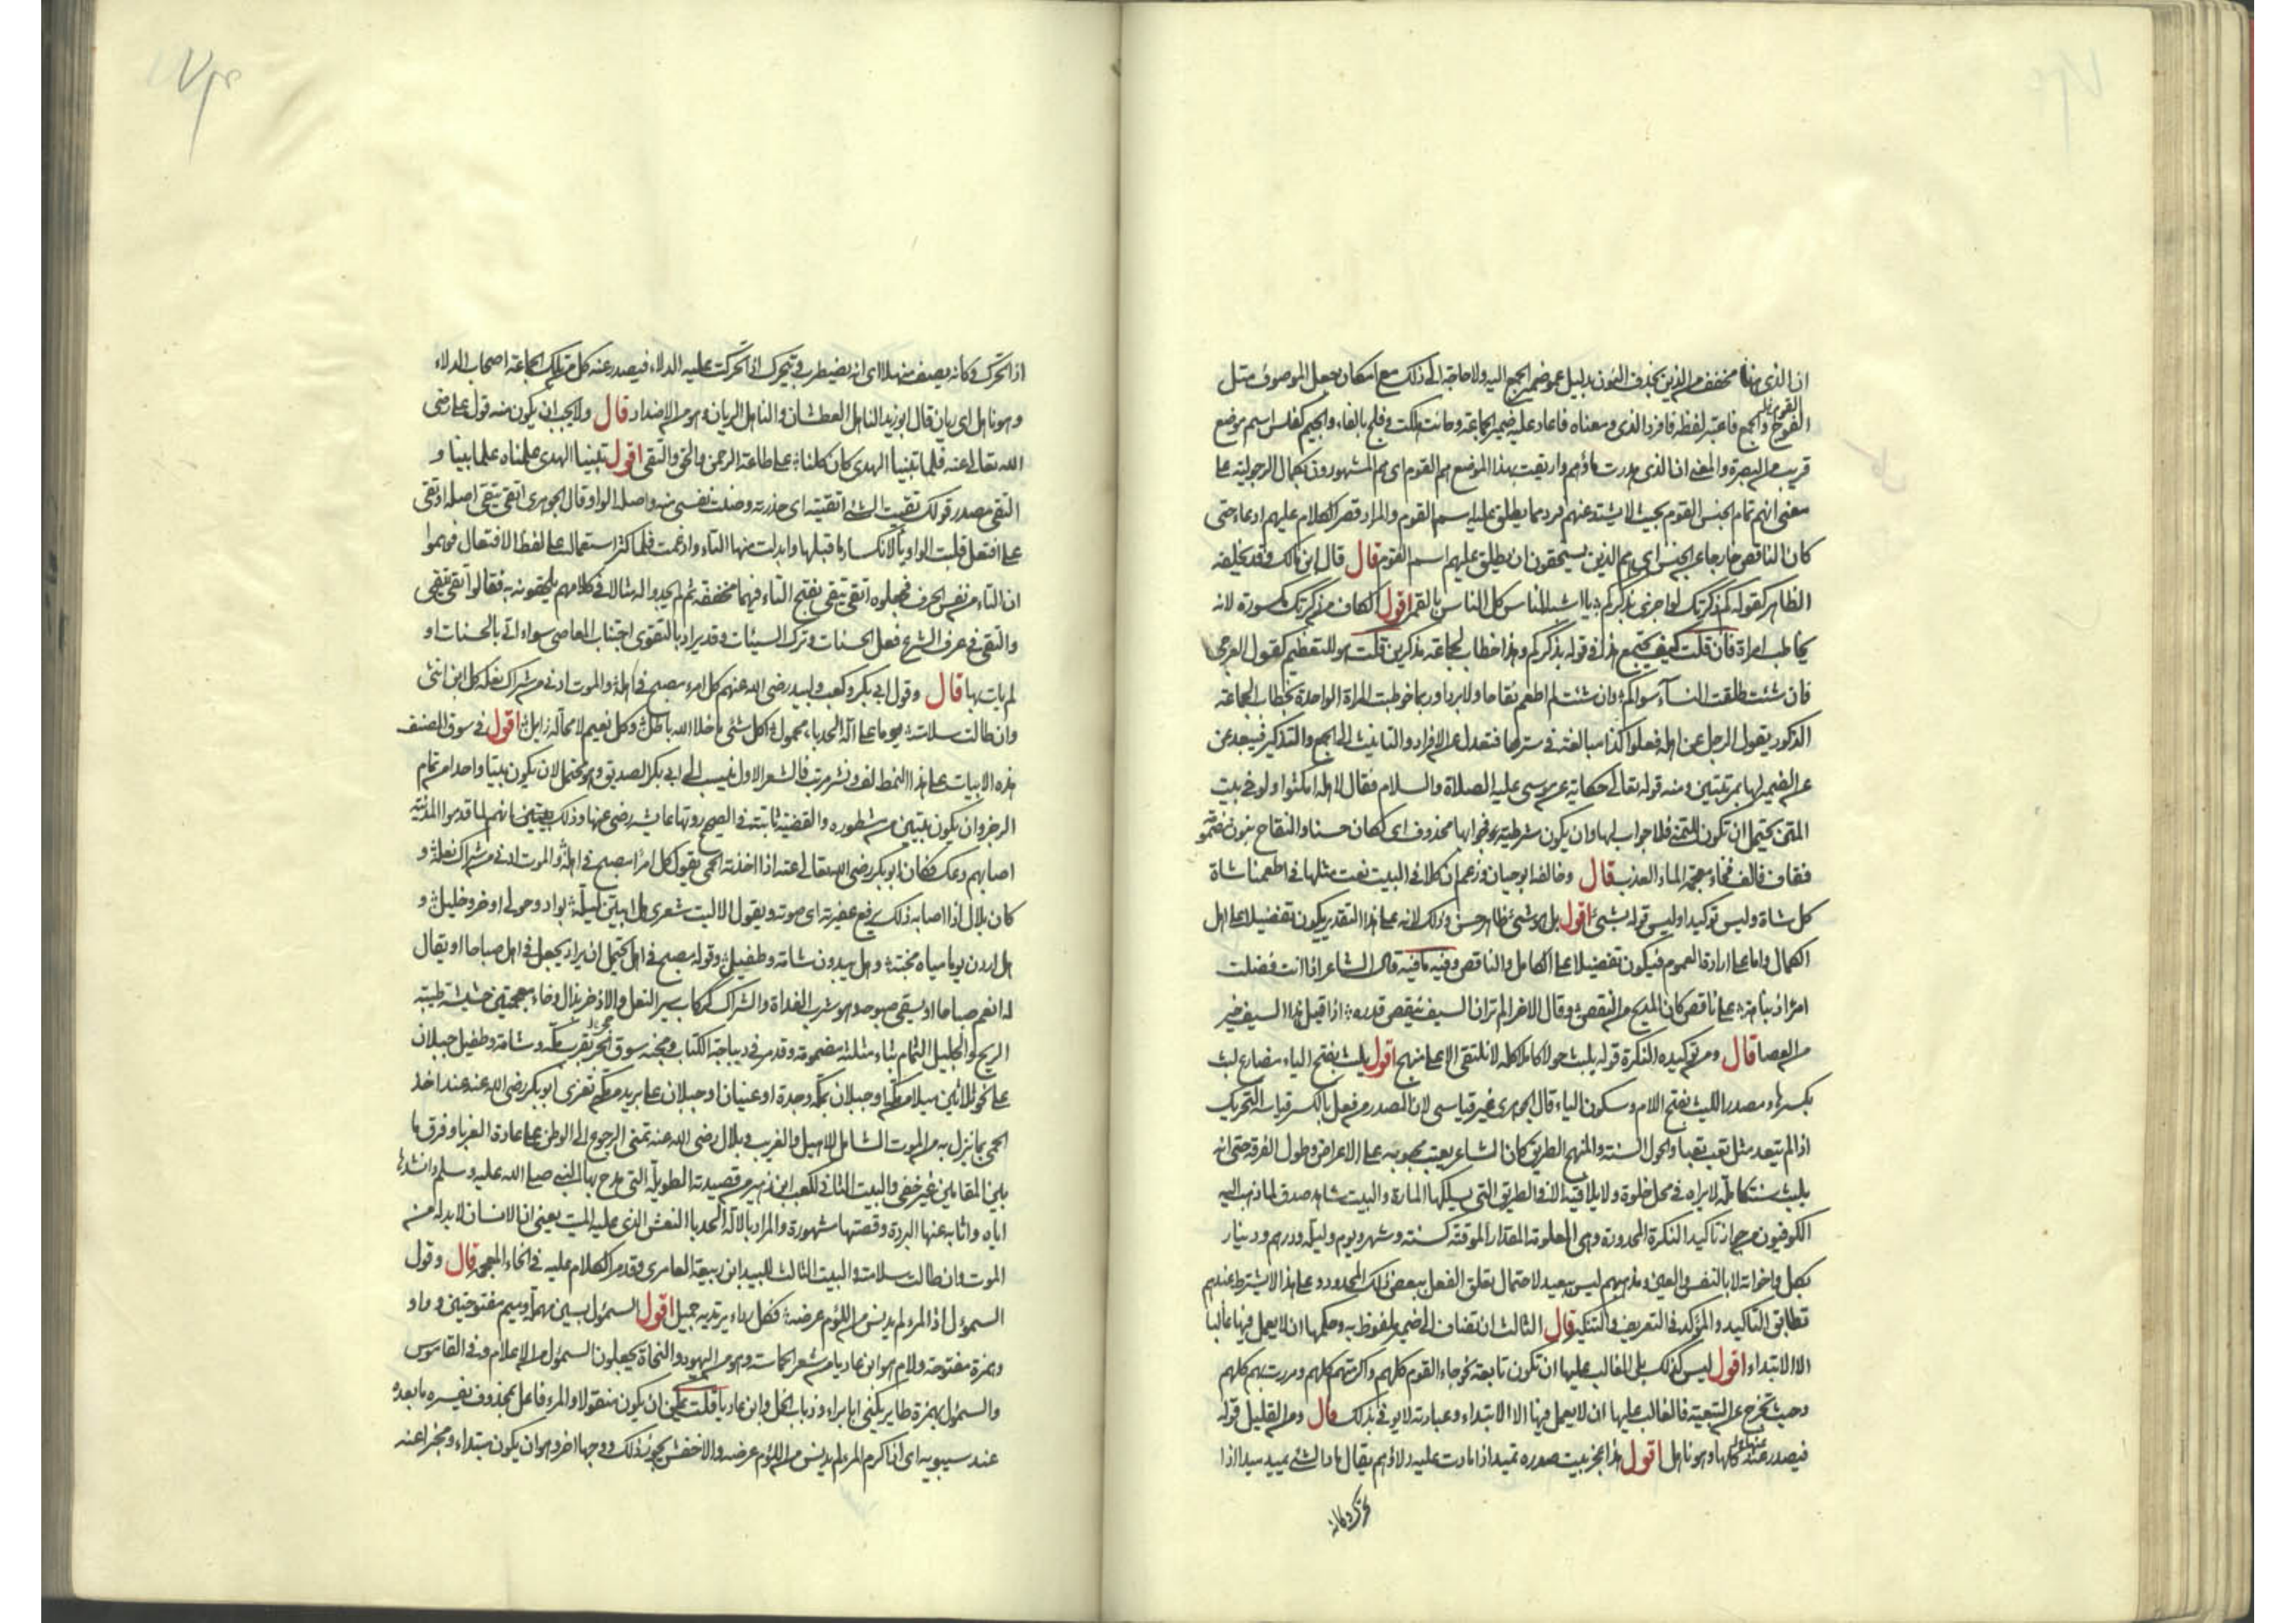 ان الذي هنا مخفف من الذين بحذف النون بدليل عود ضمير الجمع اليه ولا حاجة الى ذلك مع امكان جعل الموصوف مثل
القوم
الفوج والجمع فاعتبر لفظه فافرد الذي ومعناه فاعاد عليه ضمير الجماعة وحانت هلكت وفلج بالفاء والجيم كفلس اسم موضع
قريب من البصرة والمعنى ان الذي هدرت دماؤهم واريقت بهذا الموضع هم القوم اي هم المشهورون بكمال الرجولية على
معنى انهم تمام الجنس القوم بحيث لا يشذ عنهم فرد مما يطلق عليه اسم القوم والمراد قصر الكلام عليهم ادعاء حتى
كان الناقص خارجا عن الجنس اي هم الذين يستحقون ان يطلق عليهم اسم القوم قال قال ابن مالك وقد يخلفه
الظاهر كقوله كم ذكرتك لو اجزى بذكركم يا اشبه الناس كل الناس بالقمر اقول الكاف من ذكرتك مكسورة لانه
يخاطب امراة فان قلت كيف يجتمع هذا في قوله بذكركم وهذا خطاب لجماعة مذكرين قلت هو للتعظيم كقول العرجي
فان شئت طلقت النساء سواكم وان شئت لم اطعم نقاخا ولا بردا وربما خوطبت المراة الواحدة بخطاب الجماعة
الذكور يقول الرجل عن اهله فعلوا كذا مبالغة في سترها فتعدل عن الافراد والتانيث الى الجمع والتذكير فيبعد عن
عن الضمير لها بمرتبتين ومنه قوله تعالى حكاية عن موسى عليه الصلاة والسلام فقال لاهله امكثوا ولو في بيت
المتن يحتمل ان تكون للتمني فلا جواب لها وان يكون شرطية وجوابها محذوف اي لكان حسنا والنقاخ بنون مضمومة
فقاف فالف فخاء معجمة الماء العذب قال وخالفه ابو حيان وزعم ان كلا في البيت نعت مثلها في اطعمنا شاة
كل شاة وليس توكيدا وليس قوله بشئ اقول بل هو شئ ظاهر حسن وذلك لانه على هذا التقدير يكون تفضيلا على اهل
الكمال واما على ارادة العموم فيكون تفضيلا على الكامل والناقص وفيه ما فيه قال الشاعر اذا انت فضلت
امرا ذ نباهة على ناقص كان المديح من النقص وقال الاخر الم تر ان السيف ينقص قدره اذا قيل هذا السيف خير
من العصا قال ومن توكيده النكرة قوله يلبث حولا كاملا كله لا نلتقي الا على منهج اقول يلبث بفتح الياء مضارع لبث
بكسرها ومصدر اللبث بفتح اللام وسكون الباء قال الجوهري غير قياسي لان المصدر من فعل بالكسر قياسه التحريك
اذا لم يتعد مثل تعب تعبا والحول السنة والمنهج الطريق كان الشاعر يعتب محبوبه على الاعراض وطول الفرقة حتى انه
يلبث سنة كاملة لا يراه في محل خلوة ولا يلاقيه الا في الطريق التي يسلكها المارة والبيت شاهد صدق لما ذهب اليه
الكوفيون من جواز تاكيد النكرة المحدودة وهي المعلومة المقدار الموقتة كسنة وشهر ويوم وليلة ودرهم ودينار
بكل واخواته لا بالنفس والعين ومذهبهم ليس ببعيد لاحتمال تعلق الفعل ببعض ذلك المحدود وعلى هذا لا يشترط عندهم
تطابق التاكيد والمؤكد في التعريف والتنكير قال الثالث ان تضاف الى ضمير ملفوظ به وحكمها ان لا يعمل فيها غالبا
الا الابتداء اقول ليس كذلك بل الغالب عليها ان تكون تابعة نحو جاء القوم كلهم واكرمتهم كلهم ومررت بهم كلهم
وحيث تخرج عن التبعية فالغالب عليها ان لا يعمل فيها الا الابتداء وعبارته لا يوفي بذلك قال ومن القليل قوله
فيصدر عنه كلها وهو ناهل اقول هذا عجز بيت صدره تميد اذا مادت عليه دلاؤهم يقال ماد الشئ يميد ميدا اذا
تحرك وكانه
اذا تحرك وكانه يصف منهلا اي انه يضطرب ويتحرك اذا تحركت عليه الدلاء فيصدر عنه كل من تلك الجماعة اصحاب الدلاء
وهو ناهل اي ريان قال ابو زيد الناهل العطشان والناهل الريان وهو من الاضداد قال ولا يجب ان يكون منه قول علي رضي
الله تعالى عنه فلما تبينا الهدى كان كلنا على طاعة الرحمن والحق والتقى اقول تبينا الهدى علمناه علما بينا و
التقى مصدر قولك تقيت الشئ اتقيته اي حذرته وصنت نفسي منه واصله الواو قال الجوهري اتقى يتقي اصله اوتقى
على افتعل قلبت الواو ياء لانكسار ما قبلها وابدلت منها التاء وادغمت فلما كثر استعماله على لفظ الافتعال توهموا
ان التاء من نفس الحرف فجعلوه اتقى يتقي بفتح التاء فيهما مخففة ثم لم يجدوا له مثالا في كلامهم يلحقونه به فقالوا تقى يتقي
والتقى في عرف الشرع فعل الحسنات وترك السيئات وقد يراد بالتقوى اجتناب المعاصي سواء اتي بالحسنات او
لم يات بها قال وقول ابي بكر وكعب ولبيد رضي الله عنهم كل امرء مصبح في اهله والموت ادنى من شراك نعله كل ابن انثى
وان طالت سلامته يوما على آلة الحدباء محمول كل شئ ما خلا الله باطل وكل نعيم لا محالة زايل اقول في سوق المصنف
هذه الابيات على هذا النمط لف ونشر مرتب فالشعر الاول نسب الى ابي بكر الصديق وهو محتمل لان يكون بيتا واحدا من تمام
الرجز وان يكون بيتين من مشطوره والقضية ثابتة في الصحيح روتها عايشة رضي عنها وذلك انهم لما قدموا المدينة
اصابهم وعك فكان ابو بكر رضي الله تعالى عنه اذا اخذته الحمى يقول كل امرأ مصبح في اهله والموت ادنى من شراك نعله و
كان بلال اذا اصابه ذلك يرفع عقيرته اي صوته ويقول الا ليت شعري هل ابيتن ليلة بواد وحولي اذخر وجليل و
هل اردن يوما مياه مجنة وهل يبدون شامة وطفيل وقوله مصبح في اهله يحتمل ان يراد يجعل في اهله صباحا او يقال
له انعم صباحا او يسقى صبوحه وهو شرب الغداة والشراك ككتاب سير النعل والاذخر بذال وخاء معجمتين حشيشة طيبة
الريح والجليل الثمام بثاء مثلثة مضمومة وقد مر في ديباجة الكتاب ومجنة سوق بقرب مكة وشامة وطفيل جبلان
على نحو ثلاثين ميلا من مكة او جبلان بمكة وجدة او عينان او جبلان على بريد من مكة تعزى ابو بكر رضي الله عنه عند اخذ
الحمى بما ينزل به من الموت الشامل للاهيل والغريب وبلال رضي الله عنه تمنى الرجوع الى الوطن على عادة الغربا وفرق ما
بين المقامين غير خفي والبيت الثاني لكعب ابن زهير من قصيدته الطويلة التي مدح بها النبي صلى الله عليه وسلم وانشدها
اياه واثابه عنها البردة وقصتها مشهورة والمراد بالآلة الحدبا النعش الذي عليه الميت يعني ان الانسان لا بد له من
الموت وان طالت سلامته والبيت الثالث للبيد ابن ربيعة العامري وقد مر الكلام عليه في الحاء المعجمة قال وقول
السموءل اذا المرء لم يدنس من اللؤم عرضه فكل رداء يرتديه جميل اقول السموءل بسين مهملة وميم مفتوحتين وواو
وهمزة مفتوحة ولام هو ابن عاديا من شعر الحماسة وهو من اليهود والنحاة يجعلون السموءل من الاعلام وفي القاموس
والسموءل بهمزة طاير يكنى ابا براء وذباب الخل وابن عاديا قلت يمكن ان يكون منقولا والمرء فاعل بمحذوف يفسره ما بعده
عند سيبويه اي اذا كرم المرء لم يدنس من اللؤم عرضه والاخفش يجوز ذلك ووجها اخر وهو ان يكون مبتداء ومخبرا عنه